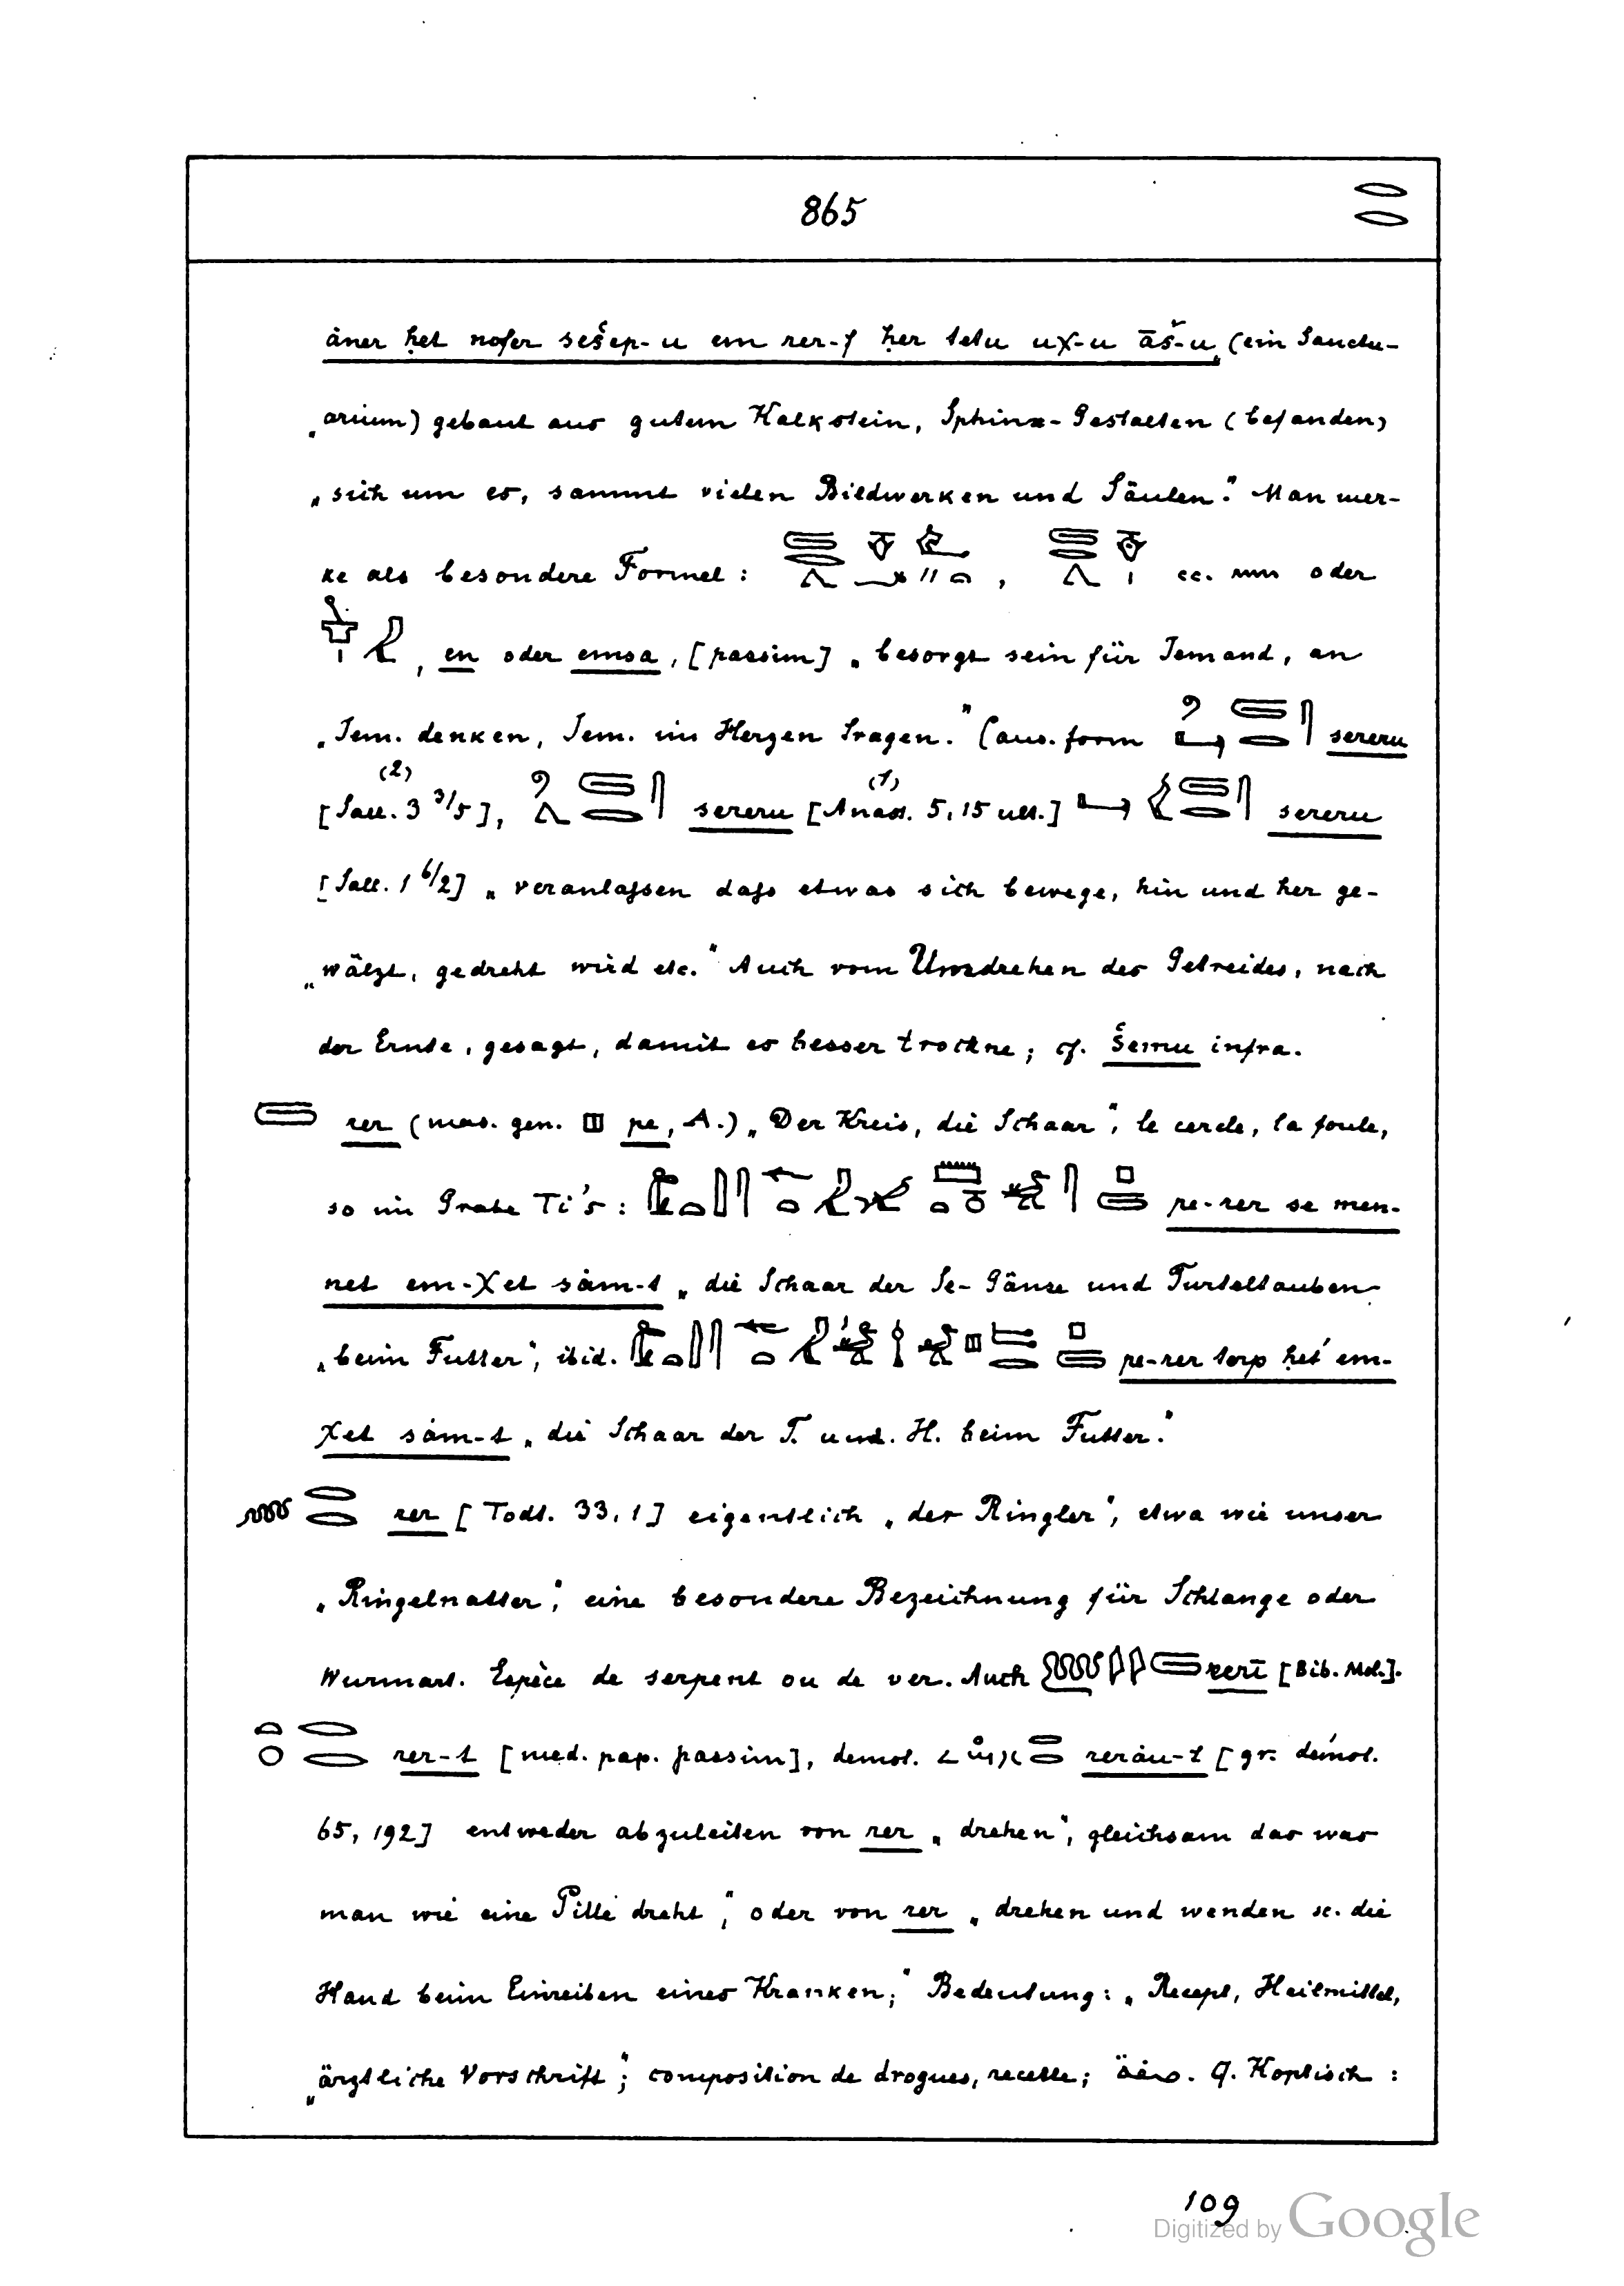 865
åner ḥet nofer sešep-u em rer-f ḥer tetu uχ-u āš-u „(ein Sanctu-
„arium) gebaut aus gutem Kalkstein, Sphinx-Gestalten (befanden)
„sich um es, sammt vielen Bildwerken und Säulen." Man mer-
ke als besondere Formel: , cc. oder
, en oder emsa, [passim] „besorgt sein für Jemand, an
„Jem. denken, Jem. im Herzen tragen." Caus. form sereru
[Sall. 3 3/5], (2) sereru [Anast. 5, 15 ult.] (1) sereru
[Sall. 1 6/2] „veranlaßen daß etwas sich bewege, hin und her ge-
„wälzt, gedreht wird etc." Auch vom Umdrehen des Getreides, nach
der Ernte, gesagt, damit es besser trockne; cf. šemu infra.
rer (mas. gen. pe, A.) „Der Kreis, die Schaar", le cercle, la foule,
so im Grabe Ti's: pe-rer se men-
net em-χet såm-t „die Schaar der Se-Gänse und Turteltauben
„beim Futter", ibid. pe-rer torp ḥet' em-
χet såm-t „die Schaar der T. und. H. beim Futter."
rer [Todt. 33, 1] eigentlich „der Ringler", etwa wie unser
„Ringelnatter", eine besondere Bezeichnung für Schlange oder
Wurmart. Espèce de serpent ou de ver. Auch rerī [Bib. Md.].
rer-t [med. pap. passim], demot. reråu-t [gr. démot.
65, 192] entweder abzuleiten von rer „drehen", gleichsam das was
man wie eine Pille dreht", oder von rer „drehen und wenden sc. die
Hand beim Einreiben eines Kranken;" Bedeutung: „Recept, Heilmittel,
„ärztliche Vorschrift"; composition de drogues, recette; Cf. Koptisch :
109
Digitized by Google